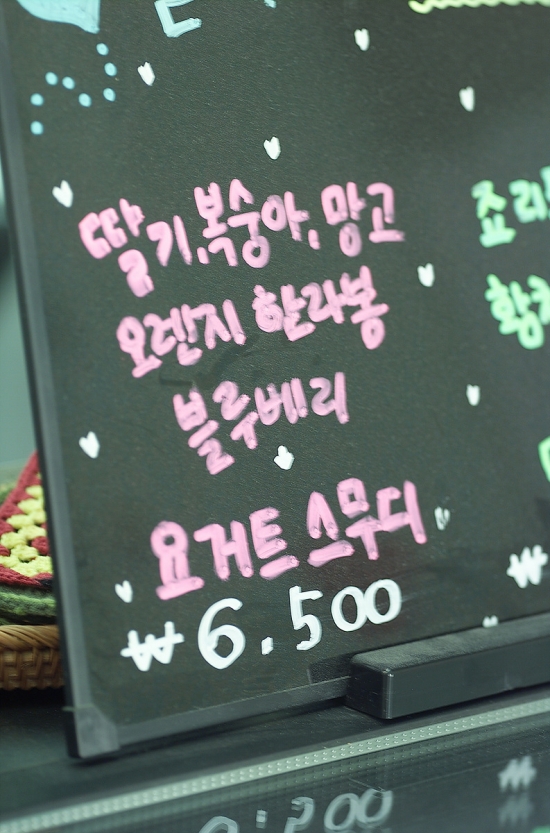 딸기.복숭아.망고
오렌지 한라봉
블루베리
요거트 스무디
₩6.500
₩